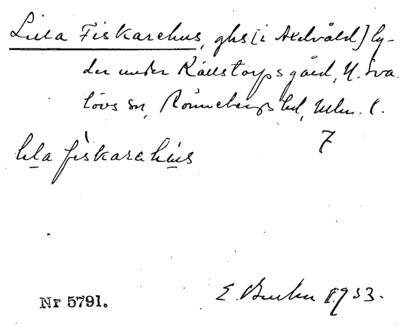 Lilla Fiskarehus, ghs [i Axelvåld] ly-
der under Källstorps gård, N. Sva-
lövs sn, Rönnebergs hd, Mlm. l.
7
lıla fiskarahús
Nr 5791.
E. 1933.